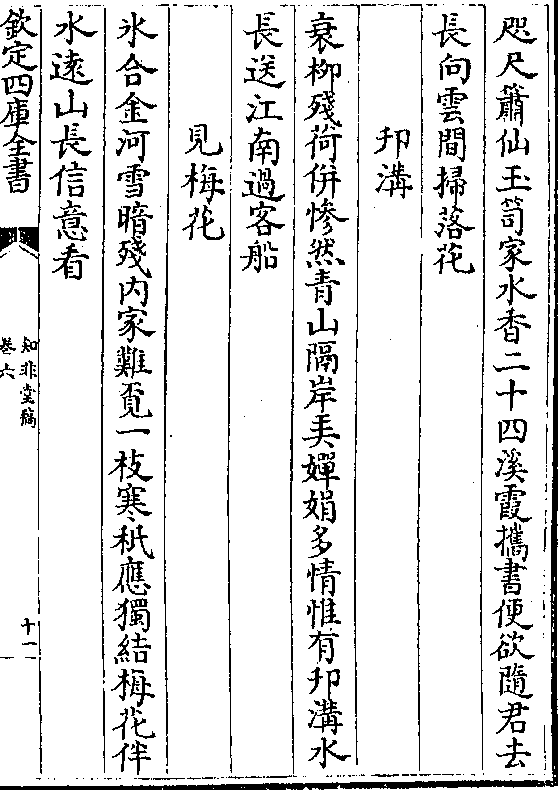 咫尺簫仙玉笥家水香二十四溪霞攜書便欲隨君去
長向雲間掃落花
邗溝
衰柳殘荷併慘然青山隔岸美嬋娟多情惟有邗溝水
長送江南過客船
見梅花
氷合金河雪暗殘内家難覓一枝寒秖應獨結梅花伴
水遠山長信意看
欽定四庫全書
知非堂稿
卷六
十一